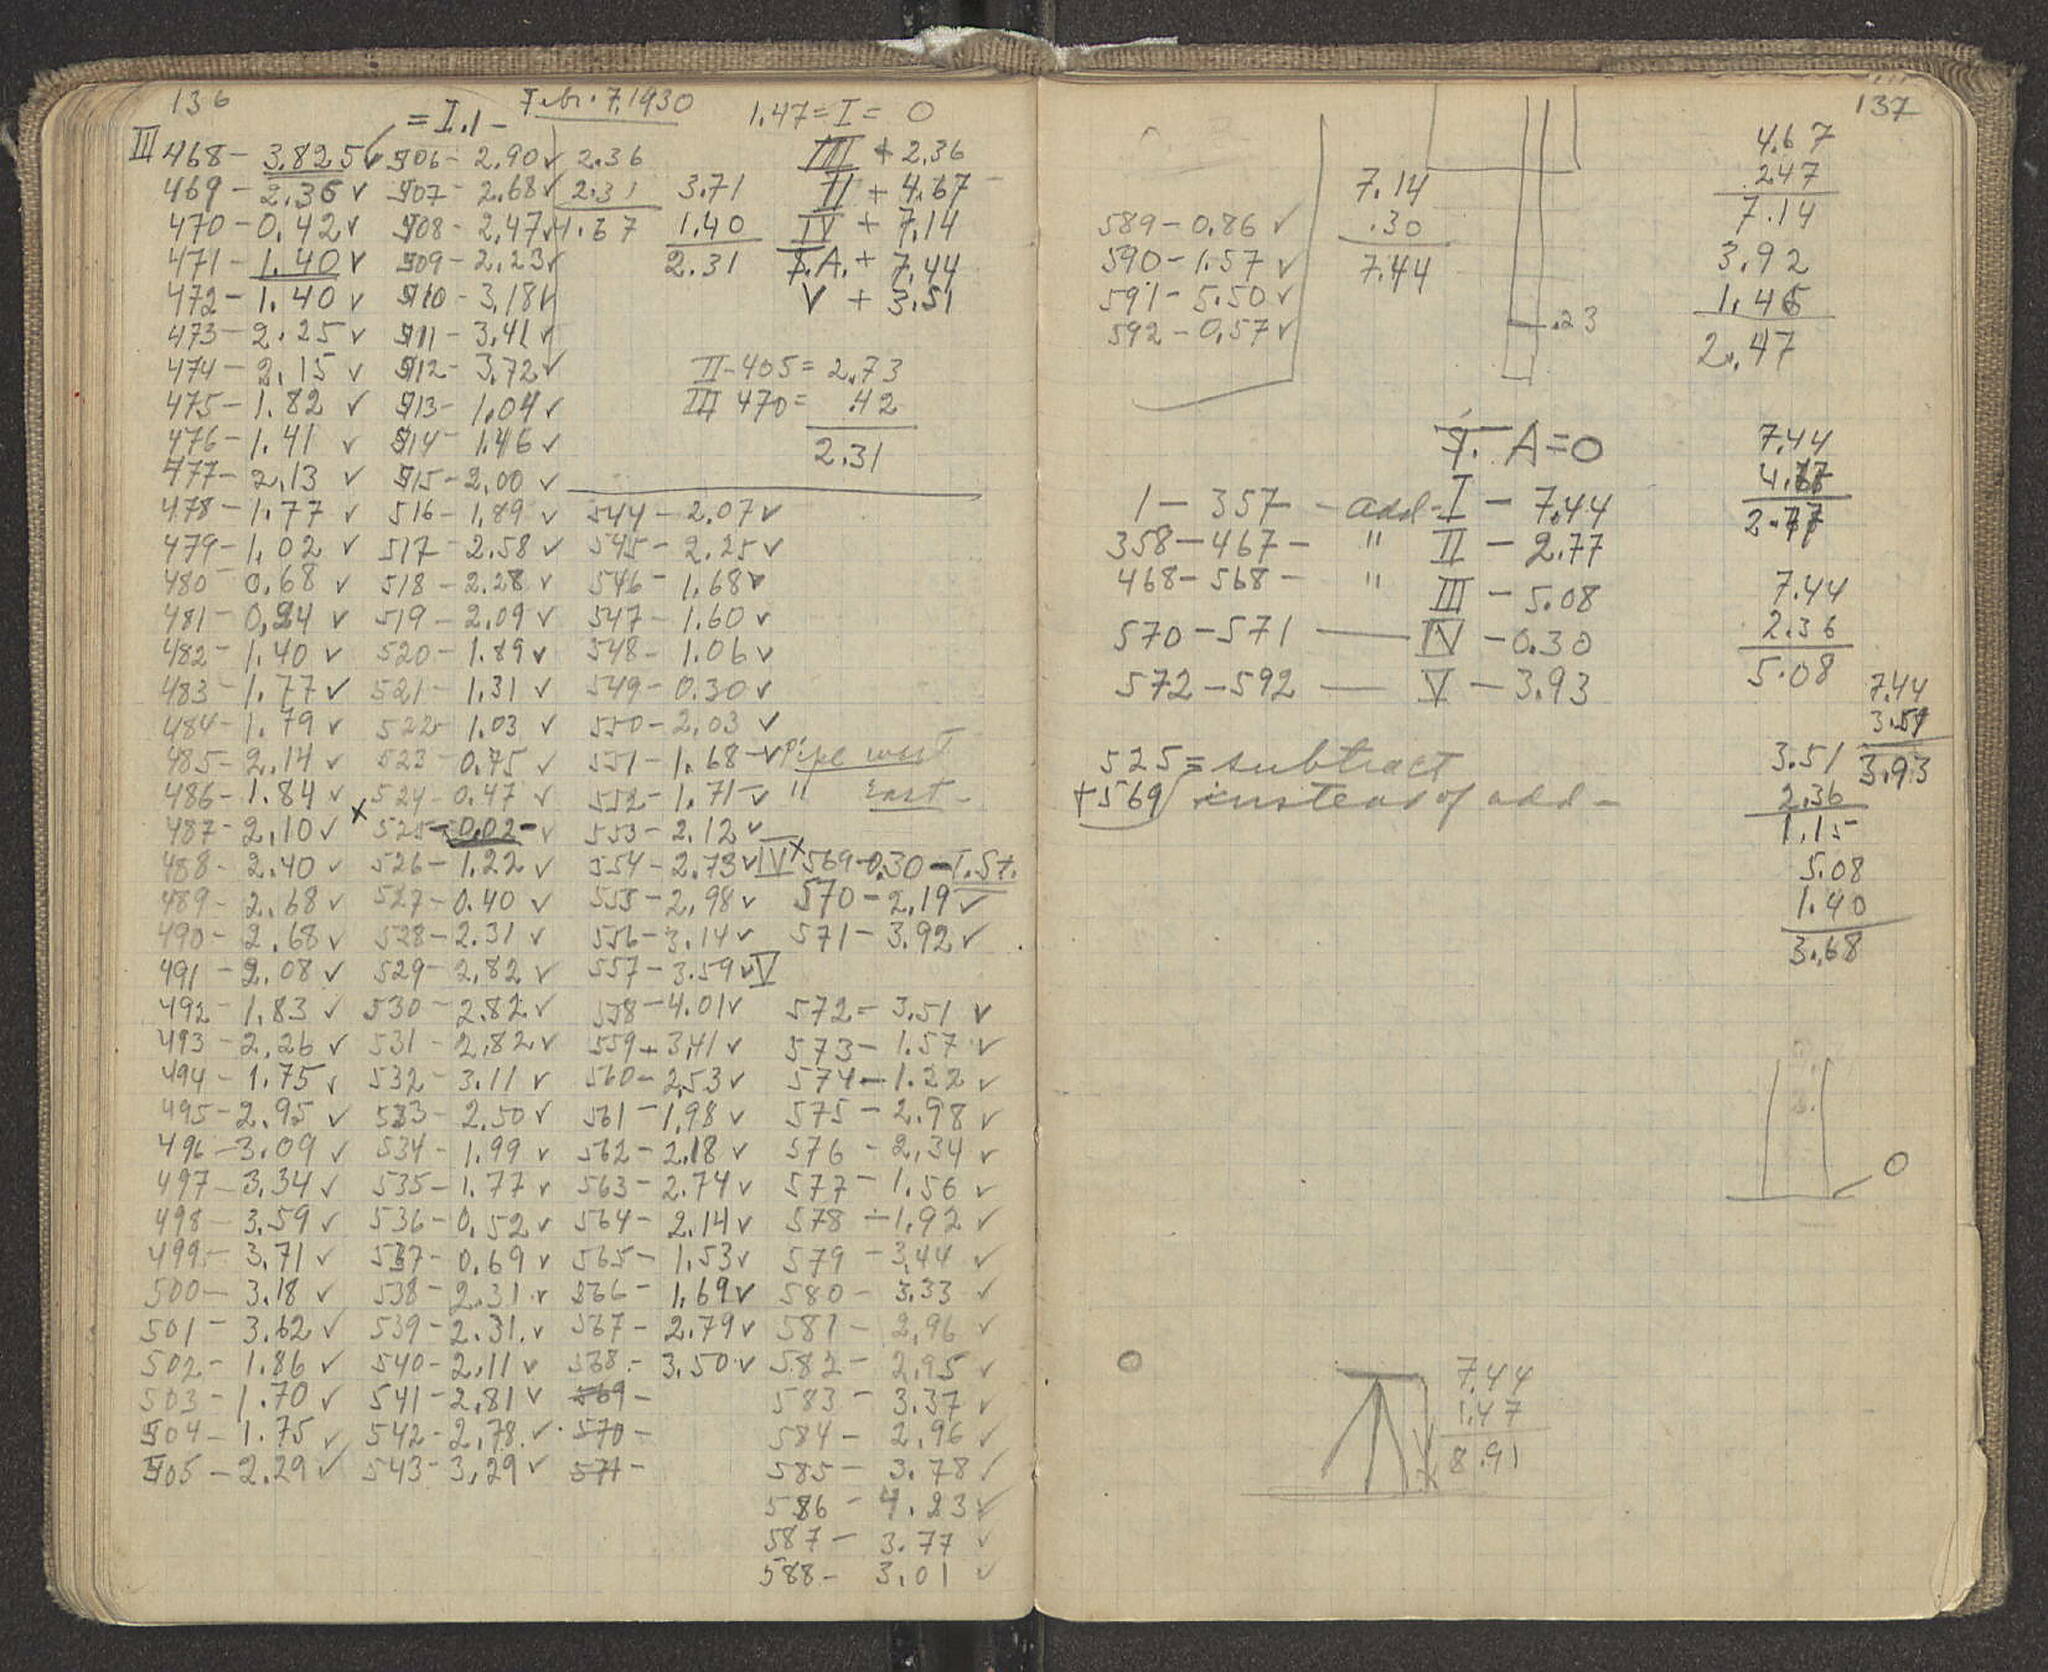 136
Febr. 7, 1930
= I.1 -
III 468 - 3.825 ✓
469 - 2.36 ✓
470 - 0.42 ✓
471 - 1.40 ✓
472 - 1.40 ✓
473 - 2.25 ✓
474 - 2.15 ✓
475 - 1.82 ✓
476 - 1.41 ✓
477 - 2.13 ✓
478 - 1.77 ✓
479 - 1.02 ✓
480 - 0.68 ✓
481 - 0.24 ✓
482 - 1.40 ✓
483 - 1.77 ✓
484 - 1.79 ✓
485 - 2.14 ✓
486 - 1.84 ✓
487 - 2.10 ✓
488 - 2.40 ✓
489 - 2.68 ✓
490 - 2.68 ✓
491 - 2.08 ✓
492 - 1.83 ✓
493 - 2.26 ✓
494 - 1.75 ✓
495 - 2.95 ✓
496 - 3.09 ✓
497 - 3.34 ✓
498 - 3.59 ✓
499 - 3.71 ✓
500 - 3.18 ✓
501 - 3.62 ✓
502 - 1.86 ✓
503 - 1.70 ✓
504 - 1.75 ✓
505 - 2.29 ✓
506 - 2.90 ✓
507 - 2.68 ✓
508 - 2.47 ✓
509 - 2.23 ✓
510 - 3.18 ✓
511 - 3.41 ✓
512 - 3.72 ✓
513 - 1.04 ✓
514 - 1.46 ✓
515 - 2.00 ✓
516 - 1.89 ✓
517 - 2.58 ✓
518 - 2.28 ✓
519 - 2.09 ✓
520 - 1.89 ✓
521 - 1.31 ✓
522 - 1.03 ✓
523 - 0.75 ✓
524 - 0.47 ✓
x 525 - 0.02 - ✓
526 - 1.22 ✓
527 - 0.40 ✓
528 - 2.31 ✓
529 - 2.82 ✓
530 - 2.82 ✓
531 - 2.82 ✓
532 - 3.11 ✓
533 - 2.50 ✓
534 - 1.99 ✓
535 - 1.77 ✓
536 - 0.52 ✓
537 - 0.69 ✓
538 - 2.31 ✓
539 - 2.31 ✓
540 - 2.11 ✓
541 - 2.81 ✓
542 - 2.78 ✓
543 - 3.29 ✓
2.36
2.31
4.67
3.71
1.40
2.31
1.47 = I = 0
III + 2.36
II + 4.67
IV + 7.14
T.A. + 7.44
V + 3.51
II - 405 = 2.73
III 470 = .42
2.31
544 - 2.07 ✓
545 - 2.25 ✓
546 - 1.68 ✓
547 - 1.60 ✓
548 - 1.06 ✓
549 - 0.30 ✓
550 - 2.03 ✓
551 - 1.68 - ✓ Pipe west
552 - 1.71 - ✓ " East -
553 - 2.12 ✓
554 - 2.73 ✓
555 - 2.98 ✓
556 - 3.14 ✓
557 - 3.59 ✓
558 - 4.01 ✓
559 - 3.41 ✓
560 - 2.53 ✓
561 - 1.98 ✓
562 - 2.18 ✓
563 - 2.74 ✓
564 - 2.14 ✓
565 - 1.53 ✓
566 - 1.69 ✓
567 - 2.79 ✓
568 - 3.50 ✓
569 -
570 -
571 -
IV x 569 - 0.30 - T.St.
570 - 2.19 ✓
571 - 3.92 ✓
V
572 - 3.51 ✓
573 - 1.57 ✓
574 - 1.22 ✓
575 - 2.98 ✓
576 - 2.34 ✓
577 - 1.56 ✓
578 - 1.92 ✓
579 - 3.44 ✓
580 - 3.33 ✓
581 - 2.96 ✓
582 - 2.95 ✓
583 - 3.37 ✓
584 - 2.96 ✓
585 - 3.78 ✓
586 - 4.23 ✓
587 - 3.77 ✓
588 - 3.01 ✓
137
589 - 0.86 ✓
590 - 1.57 ✓
591 - 5.50 ✓
592 - 0.57 ✓
7.14
.30
7.44
.23
4.67
2.47
7.14
3.92
1.45
2.47
T. A = 0
1 - 357 - add - I - 7.44
358 - 467 - " II - 2.77
468 - 568 - " III - 5.08
570 - 571 — IV - 0.30
572 - 592 — V - 3.93
525 = subtract
+ 569 instead of add -
7.44
4.67
2.77
7.44
2.36
5.08
7.44
3.51
3.93
3.51
2.36
1.15
5.08
1.40
3.68
0
7.44
1.47
8.91